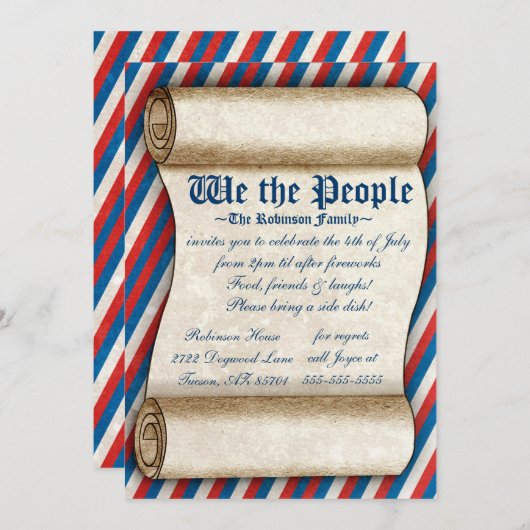 We the People
~The Robinson Family~
invites you to celebrate the 4th of July
from 2pm til after fireworks
Food, friends & laughs!
Please bring a side dish!
Robinson House
2722 Dogwood Lane
Tucson, AZ 85704
for regrets
call Joyce at
555-555-5555